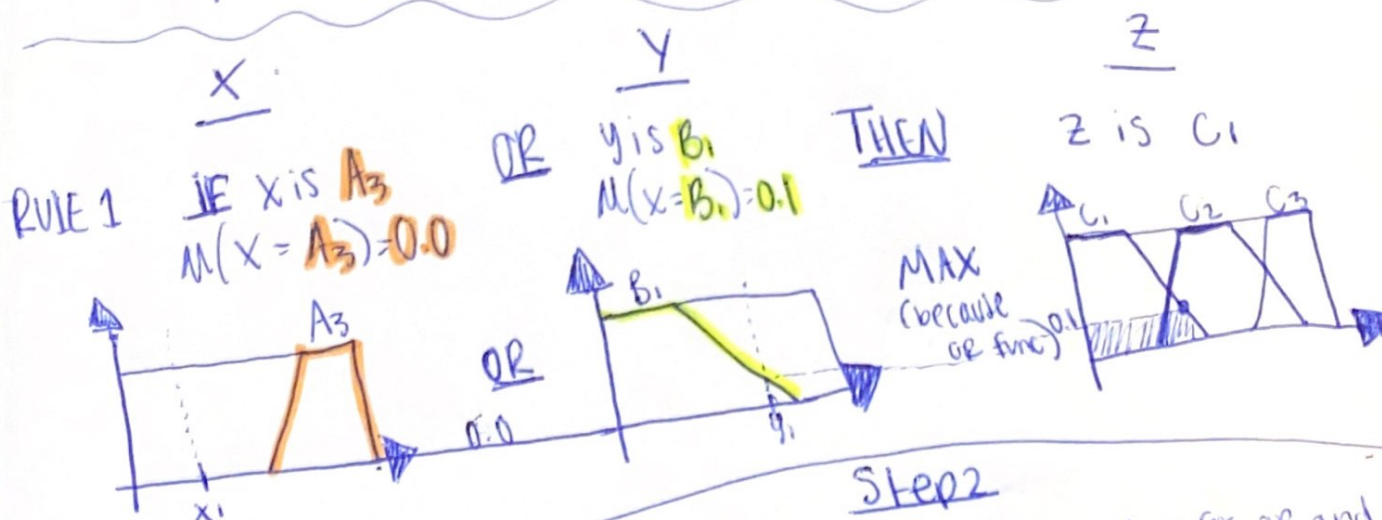 X
Y
Z
RULE 1
IF x is A3
M(X = A3)=0.0
OR
y is B1
M(X=B1)=0.1
THEN
Z is C1
A3
x1
OR
0.0
B1
y1
MAX
(because
OR func)
0.1
C1 C2 C3
Step2